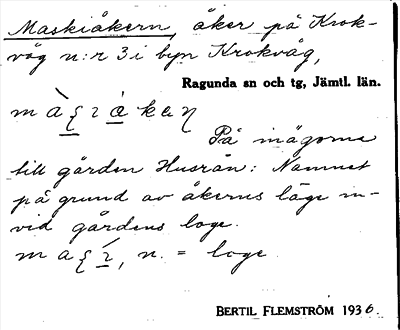 Maskiåkern, åker på Krok-
våg n:r 3 i byn Krokvåg,
Ragunda sn och tg, Jämtl. län.
På inägorna
till gården Husrån: Namnet
på grund av åkerns läge in-
vid gårdens loge.
n. = loge.
BERTIL FLEMSTRÖM 1936.